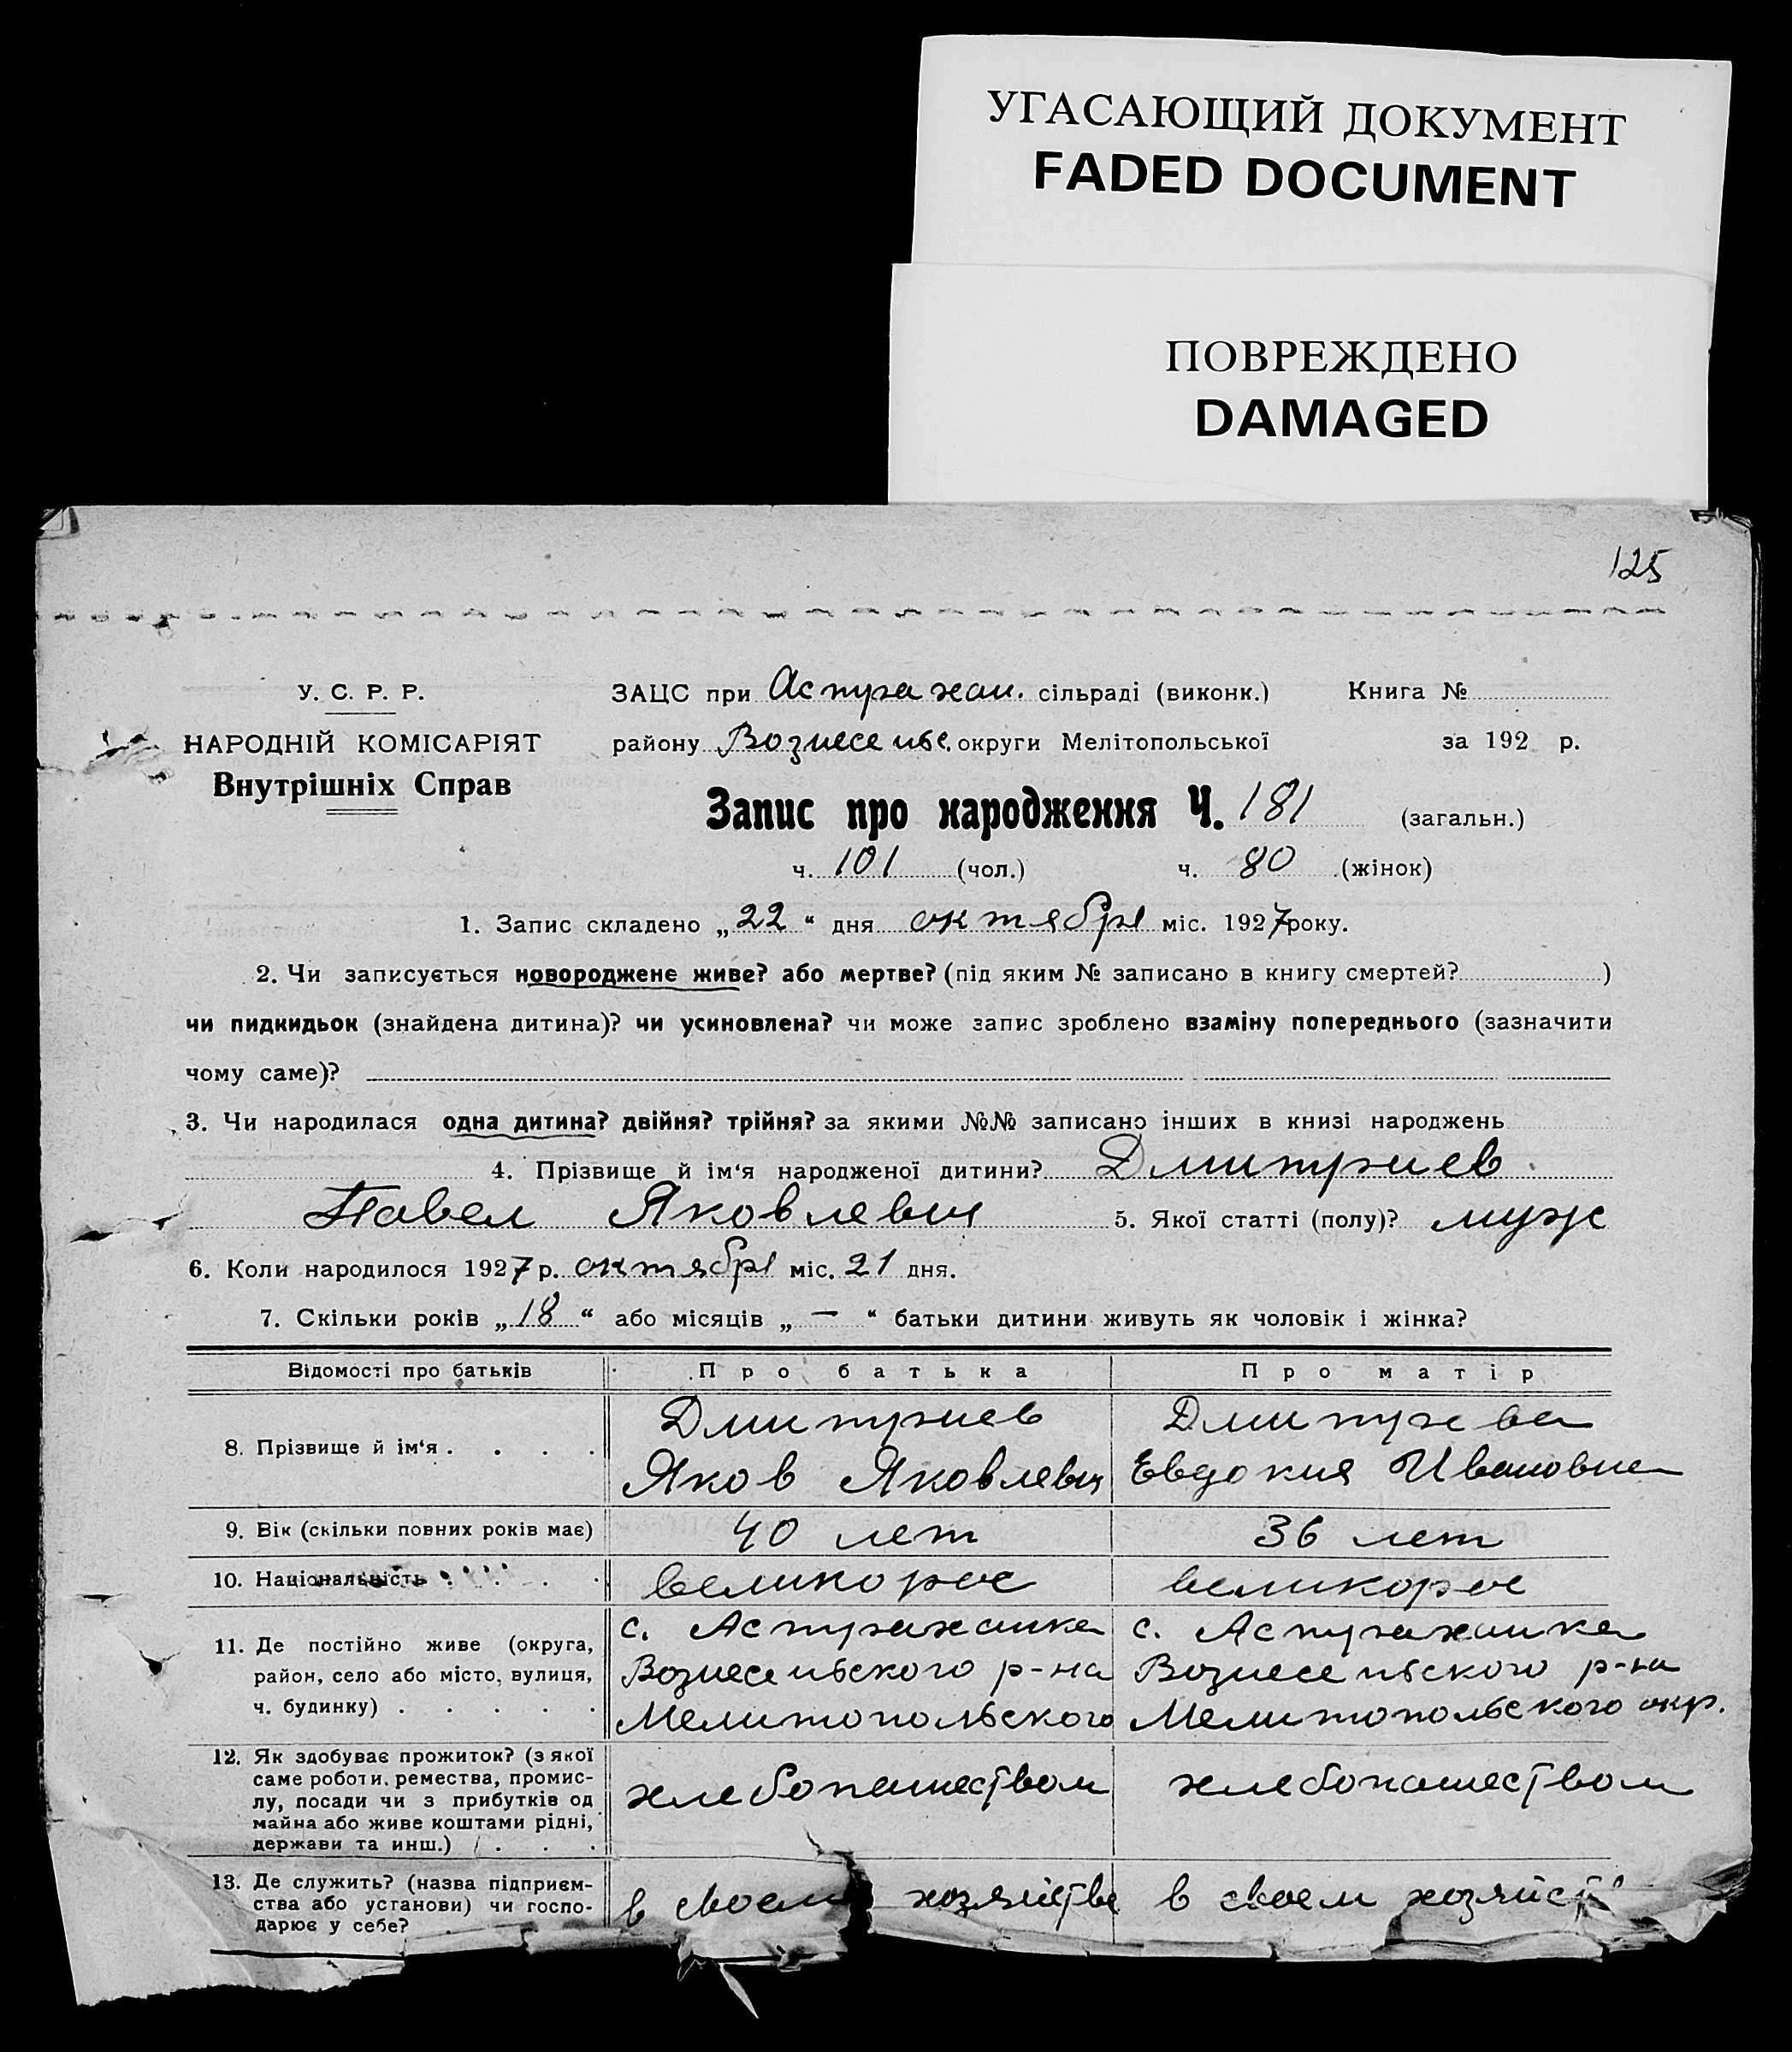 УГАСАЮЩИЙ ДОКУМЕНТ
FADED DOCUMENT
ПОВРЕЖДЕНО
DAMAGED
125
У. С. Р. Р.
НАРОДНІЙ КОМІСАРІЯТ
Внутрішніх Справ
ЗАЦС при Астрахан. сільраді (виконк.) Книга №
району Вознесеньс. округи Мелітопольської за 192 р.
Запис про народження Ч. 181 (загальн.)
ч. 101 (чол.) ч. 80 (жінок)
1. Запис складено „22“ дня октября міс. 1927 року.
2. Чи записується новороджене живе? або мертве? (під яким № записано в книгу смертей? )
чи пидкидьок (знайдена дитина)? чи усиновлена? чи може запис зроблено взаміну попереднього (зазначити
чому саме)?
3. Чи народилася одна дитина? двійня? трійня? за якими №№ записано інших в книзі народжень
4. Прізвище й ім‘я народженої дитини? Дмитриев
Павел Яковлевич 5. Якої статті (полу)? муж
6. Коли народилося 1927 р. октября міс. 21 дня.
7. Скільки років „18“ або місяців „—“ батьки дитини живуть як чоловік і жінка?
Відомості про батьків Про батька Про матір
8. Прізвище й ім‘я . . . .
Дмитриев
Яков Яковлевич
Дмитриева
Евдокия Ивановна
9. Вік (скільки повних років має) 40 лет 36 лет
10. Національність . . . . великорос великорос
11. Де постійно живе (округа,
район, село або місто, вулиця,
ч. будинку) . . . . .
с. Астраханка
Вознесеньского р-на
Мелитопольского
с. Астраханка
Вознесеньского р-на
Мелитопольского окр.
12. Як здобуває прожиток? (з якої
саме роботи, ремества, промис-
лу, посади чи з прибутків од
майна або живе коштами рідні,
держави та инш.) . . .
хлебопашеством
хлебопашеством
13. Де служить? (назва підприєм-
ства або установи) чи госпо-
дарює у себе?
в своем хозяйстве
в своем хозяйст